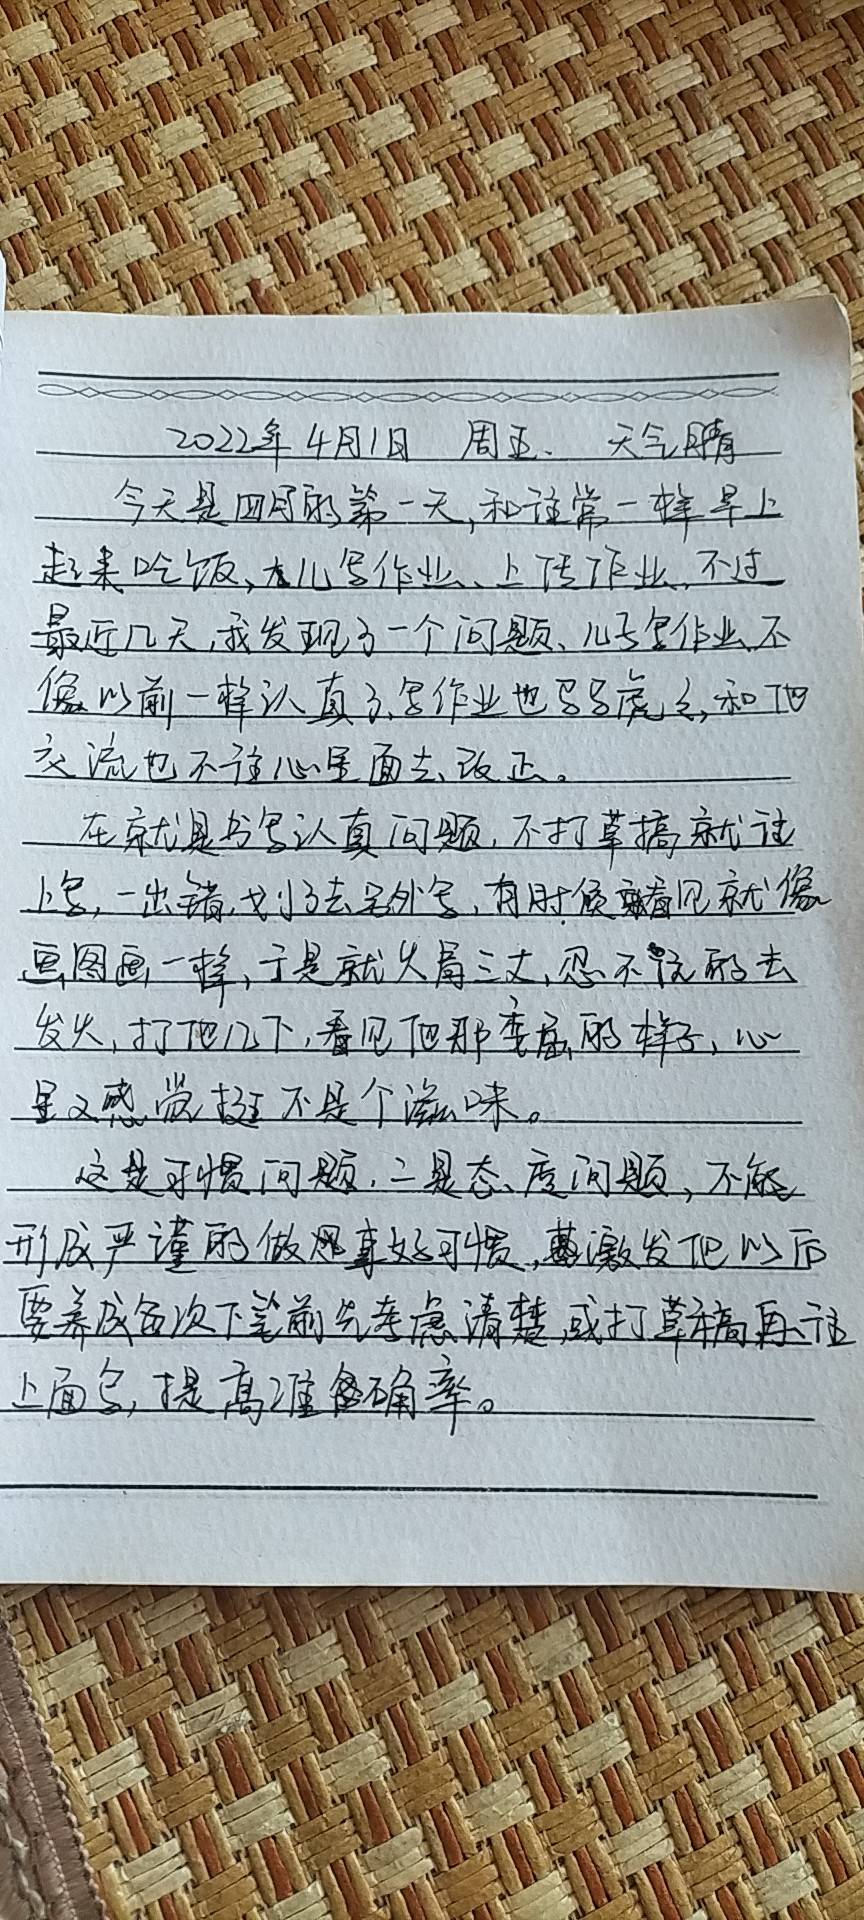 2022年4月1日 周五、 天气晴
今天是四月的第一天,和往常一样早上
起来吃饭、大儿写作业、上传作业、不过
最近几天,我发现了一个问题、儿子写作业不
像以前一样认真了、写作业也马马虎虎,和他
交流也不往心里面去、改正。
在就是书写认真问题,不打草搞就往
上写,一出错,划了去另外写,有时候看见就像
画图画一样,于是就火冒三丈,忍不住的去
发火,打他几下,看见他那委屈的样子、心
里又感觉挺不是个滋味。
这是习惯问题,二是态、度问题,不能
形成严谨的做事好习惯,激发他以后
要养成每次下笔前先考虑清楚,或打草稿再往
上面写,提高准确率。